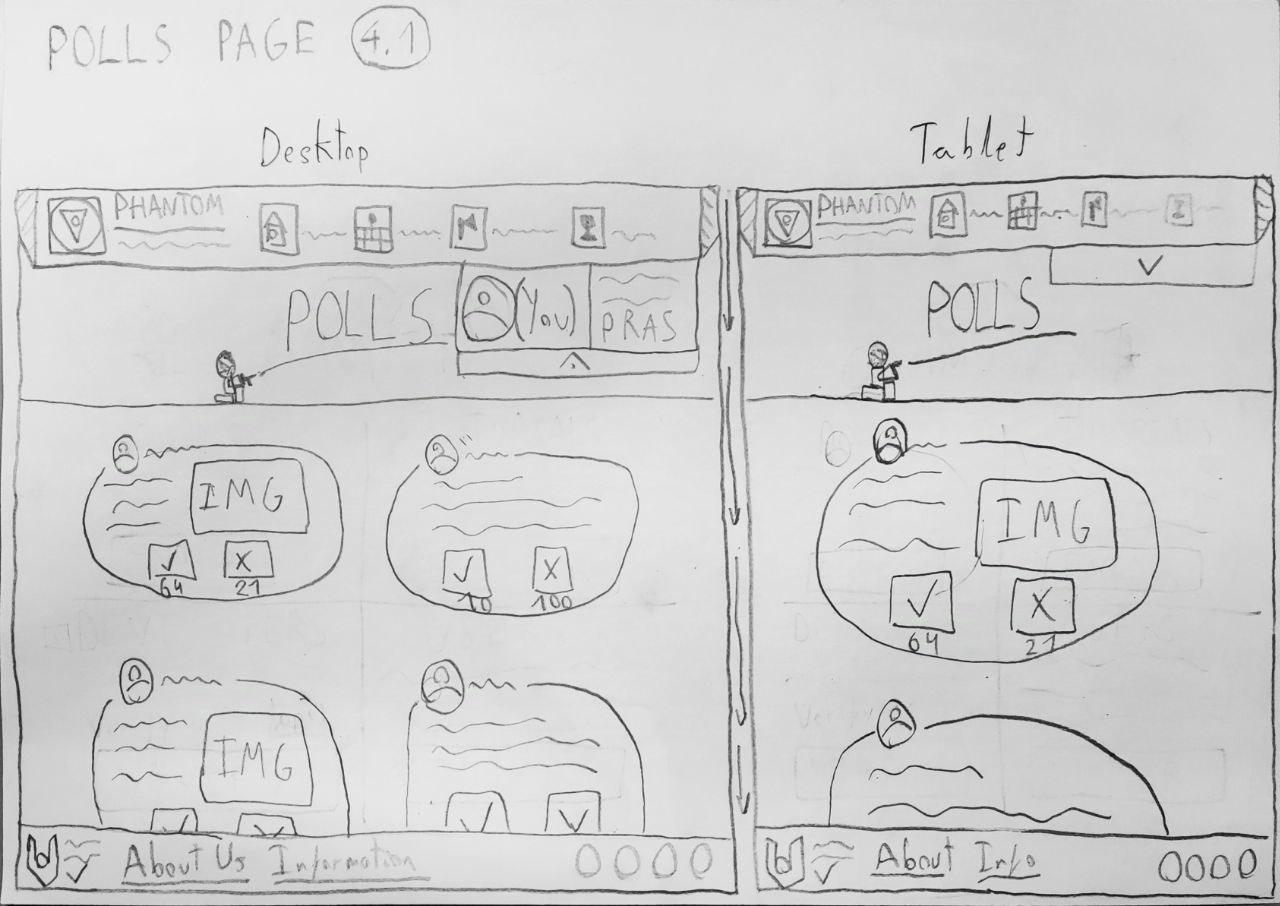 POLLS PAGE 4.1
Desktop
PHANTOM
POLLS
(You)
PRAS
IMG
64 21
10 100
IMG
About Us Information
Tablet
PHANTOM
POLLS
IMG
64 21
About Info